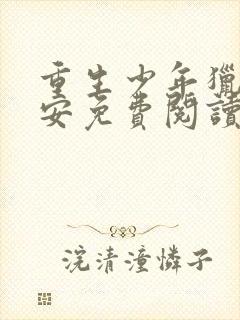 重生少年獵
安免費閱讀
浣清潼憐子